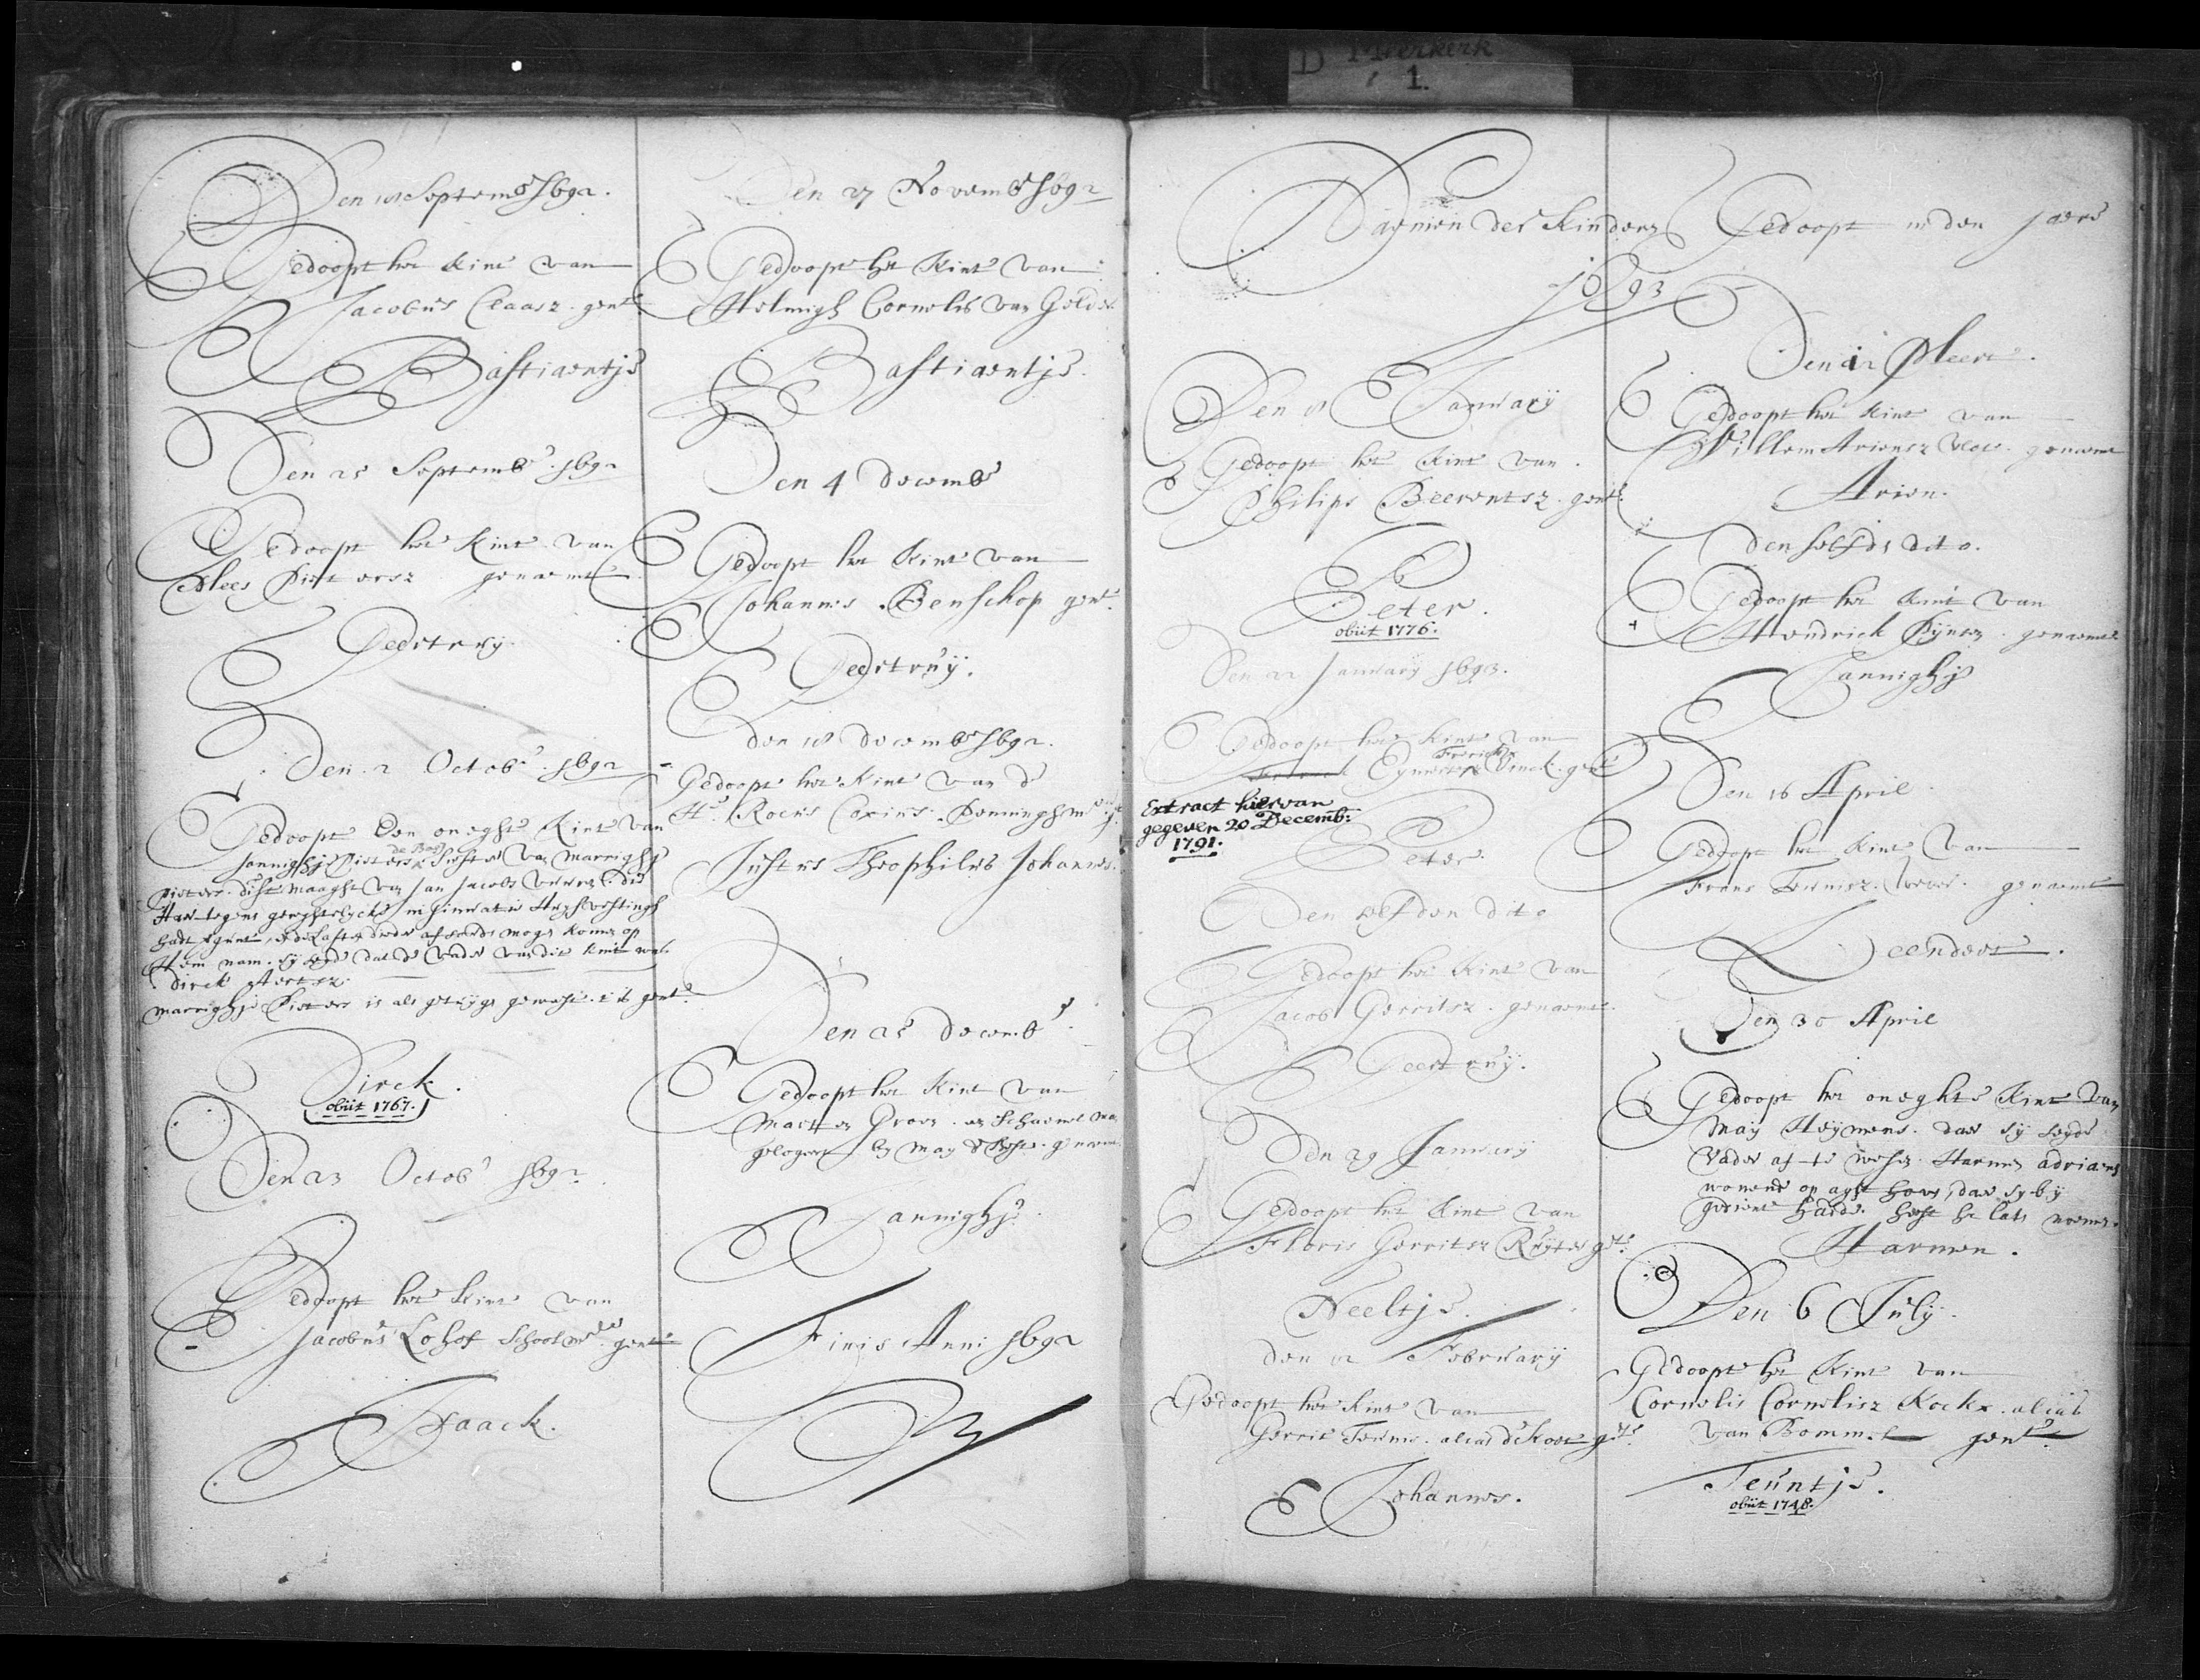 D Meerkerk
1.
Den 18 Septemb 1692.
Gedoopt het kint van
Jacobus Claasz. gent
Bastiaentje
Den 25 Septemb. 1692
Gedoopt het kint van
Mees Pietersz genaemt
Geertruy.
Den 2 Octob. 1692
Gedoopt Een oneght kint van
Jannighje Pieters de suster van Marrighje
Pieters. dist maaght van Jan Jacobs
hadt
Hem nam. sy segd dat de vader van dit kint was
Dirck Aertsz.
Marrighje Pieters is als getuyge geweest. t is gent
Dirck.
obiit 1767.
Den 23 Octob 1692
Gedoopt het kint van
Jacobus Lohof Schoolmr gent
Isaack.
Den 27 Novemb 1692
Gedoopt het kint van
Helmigh Cornelis van Gelder
Bastiaentje.
Den 4 Decemb
Gedoopt het kint van
Johannes Benschop gent.
Geertruÿ.
Den 18 Decemb 1692.
Gedoopt het kint van d
Hr. Roeus Coxius.
Justus Theophilus Johannes.
Den 25 Decemb
Gedoopt het kint van
Marten Groen.
Jannighje.
Finis Anni 1692
Naemen der kinderen Gedoopt in den Jaere
1693
Den 18 January
Gedoopt het kint van
Philips Beerentsz. gent.
Peter.
obiit 1776.
Den 22 January 1693.
Gedoopt het kint van
Frerick
Vinck. gent
Extract hiervan
gegeven 20 Decemb:
1791.
Peter.
Den selfden dito
Gedoopt het kint van
Jacob Gerritsz. genaemt.
Geertruÿ.
Den 29 January
Gedoopt het kint van
Floris Gerritsz Ruyter gt.
Neeltje.
den 12 February
Gedoopt het kint van
Gerrit Teunis. alias de Koet gt.
Johannes.
Den 12 Meert.
Gedoopt het kint van
Willem Ariensz Vlot. genaemt
Arien.
Den selfde dito.
Gedoopt het kint van
Hendrick Pÿnen. genaemt
Jannighje
Den 16 April
Gedoopt het kint van
Frans Teunisz. genaemt
Leendert.
Den 30 April
Gedoopt het oneghte kint van
Maij Heijmens. daer sy seyde
Vader af te wesen Harmen adriaens
wonende op aght hoven, daer sy by
gedient hadde. heeft het late noemen.
Harmen.
Den 6 July.
Gedoopt het kint van
Cornelis Cornelisz Kockx. alias
van Bommel gent
Teuntje.
obiit 1748.